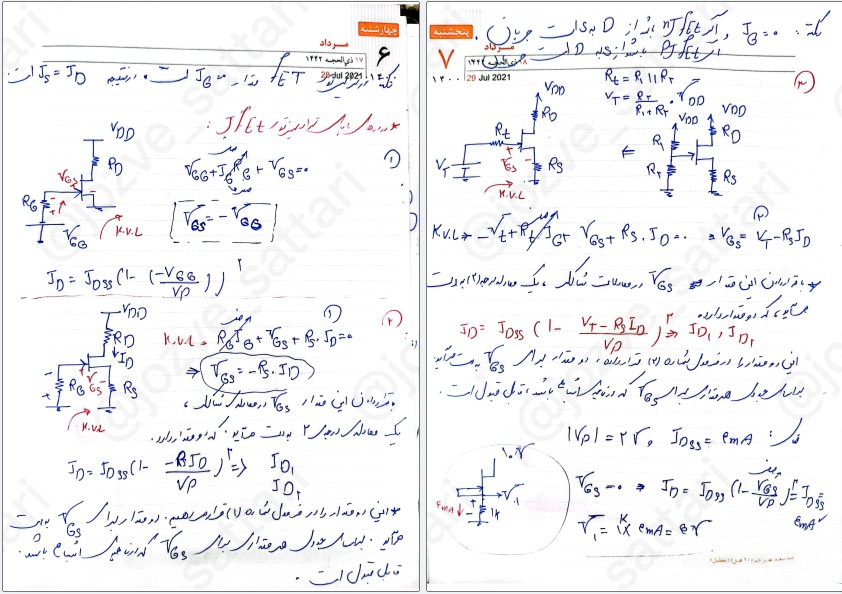 چهارشنبه
۶
مرداد
۱۷ ذی‌الحجه ۱۴۴۲
28 Jul 2021
۱۴۰۰
نکته: در ترانزیستور FET مقدار IG=0 است، در نتیجه IS = ID است.
* مدارهای بایاس ترانزیستور Jfet:
VDD
RD
VGS
RG
VGG
K.V.L
①
VGG + IG RG + VGS = 0
صفر
VGS = -VGG
ID = IDSS (1 - (-VGG / VP))²
②
VDD
RD
ID
RG
VGS
RS
K.V.L
①
K.V.L → RG IG + VGS + RS . ID = 0
صفر
⇒ VGS = -RS . ID
با قرار دادن این مقدار VGS در معادله‌ی شاکلی،
یک معادله‌ی درجه‌ی ۲ به‌دست می‌آید که دو مقدار دارد.
ID = IDSS (1 - (-RS ID / VP))² ⇒ ID1
ID2
* این دو مقدار را در فرمول شماره (۱) قرار می‌دهیم. دو مقدار برای VGS به‌دست
می‌آید. هر مقداری برای VGS که در ناحیه‌ی اشباع باشد،
قابل قبول است.
پنجشنبه
۷
مرداد
۱۸ ذی‌الحجه ۱۴۴۲
29 Jul 2021
۱۴۰۰
نکته: IG = 0 و اگر nJfet باشد از D به S است جریان.
اگر PJfet باشد از S به D است جریان
③
Rt = R1 || R2
VT = R2 / (R1 + R2) . VDD
VDD
RD
Rt
VT
VGS
RS
K.V.L
⇐
VDD
VDD
R1
RD
R2
RS
K.V.L → -Vt + Rt IG + VGS + RS . ID = 0 ⇒ VGS = VT - RS ID
صفر
②
* با قرار دادن این مقدار VGS در معادلات شاکلی، یک معادله درجه (۲) به‌دست
می‌آید، که دو مقدار دارد.
ID = IDSS (1 - (VT - RS ID) / VP)² ⇒ ID1 , ID2
این دو مقدار را در فرمول شماره (۲) قرار داده، دو مقدار برای VGS به‌دست می‌آید.
هر مقداری برای VGS که در ناحیه‌ی اشباع باشد، قابل قبول است.
مثال: |VP| = 2V و IDSS = 4mA
10V
V1
4mA
1K
VGS = 0 ⇒ ID = IDSS (1 - VGS / VP)² = IDSS =
صفر
4mA
V1 = 1K × 4mA = 4V
@jozve_sattari